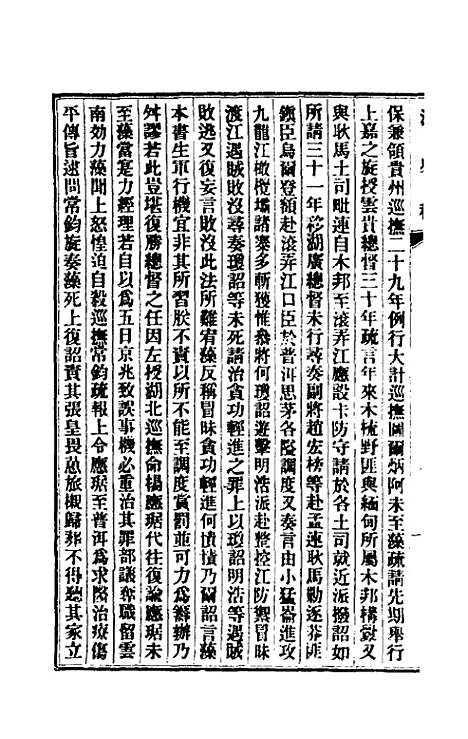 保兼領貴州巡撫二十九年例行大計巡撫圖爾炳阿未至藻疏請先期舉行
上嘉之旋授雲貴總督三十年疏言年來木梳野匪與緬甸所屬木邦構釁又
與耿馬土司毗連自木邦至滾弄江應設卡防守請於各土司就近派撥詔如
所請三十一年移湖廣總督未行尋奏副將趙宏榜等赴孟連耿馬勦逐莽匪
鎮臣烏爾登額赴滾弄江口臣於普洱思茅各隘調度又奏言由小猛崙進攻
九龍江橄欖壩諸寨多斬獲惟叅將何瓊詔遊擊明浩派赴整控江防禦冒昧
渡江遇賊敗沒尋奏瓊詔等未死請治貪功輕進之罪上以瓊詔明浩等遇賊
敗逃又復妄言敗沒此法所難宥藻反稱冒昧貪功輕進何憒憒乃爾詔言藻
本書生軍行機宜非其所習朕不責以所不能至調度賞罰並可力爲籌辦乃
舛謬若此豈堪復勝總督之任因左授湖北巡撫命楊應琚代往復諭應琚未
至藻當竭力經理若自以爲五日京兆致誤事機必重治其罪部議奪職留雲
南効力藻聞上怒惶迫自殺巡撫常鈞疏報上令應琚至普洱爲求醫治療傷
平傳旨逮問常鈞旋奏藻死上復詔責其張皇畏怯旅櫬歸葬不得聽其家立